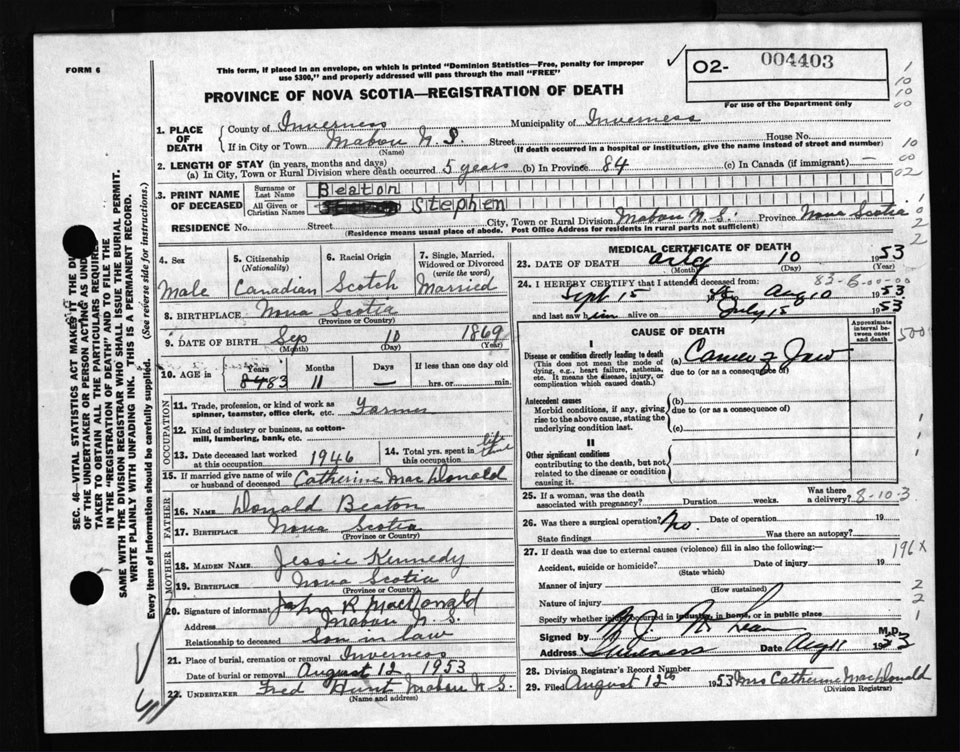 FORM 6
This form, if placed in an envelope, on which is printed "Dominion Statistics—Free, penalty for improper
use $300," and properly addressed will pass through the mail "FREE"
O2- 004403
For use of the Department only
PROVINCE OF NOVA SCOTIA—REGISTRATION OF DEATH
1. PLACE OF DEATH
County of Inverness Municipality of Inverness
If in City or Town Mabou N.S. Street House No.
(Name) (If death occurred in a hospital or institution, give the name instead of street and number)
2. LENGTH OF STAY (in years, months and days)
(a) In City, Town or Rural Division where death occurred 5 years (b) In Province 84 (c) In Canada (if immigrant) —
3. PRINT NAME OF DECEASED
Surname or Last Name Beaton
All Given or Christian Names Stephen
RESIDENCE No. Street City, Town or Rural Division Mabou N.S. Province Nova Scotia
(Residence means usual place of abode. Post Office Address for residents in rural parts not sufficient)
4. Sex Male
5. Citizenship (Nationality) Canadian
6. Racial Origin Scotch
7. Single, Married, Widowed or Divorced (write the word) Married
8. BIRTHPLACE Nova Scotia
(Province or Country)
9. DATE OF BIRTH Sep 10 1869
(Month) (Day) (Year)
10. AGE in Years Months Days If less than one day
84 83 11 — hrs. or min.
OCCUPATION
11. Trade, profession, or kind of work as
spinner, teamster, office clerk, etc. Farmer
12. Kind of industry or business, as cotton-
mill, lumbering, bank, etc.
13. Date deceased last worked at this occupation 1946
14. Total yrs. spent in this occupation life time
15. If married give name of wife
or husband of deceased Catherine MacDonald
FATHER
16. Name Donald Beaton
17. Birthplace Nova Scotia
(Province or Country)
MOTHER
18. MAIDEN NAME Jessie Kennedy
19. BIRTHPLACE Nova Scotia
(Province or Country)
20. Signature of informant John R MacDonald
Address Mabou N.S.
Relationship to deceased Son in law
21. Place of burial, cremation or removal Inverness
Date of burial or removal August 12 1953
22. UNDERTAKER Fred Hunt Mabou N.S.
(Name and address)
MEDICAL CERTIFICATE OF DEATH
23. DATE OF DEATH 10 1953
(Month) (Day) (Year)
24. I HEREBY CERTIFY that I attended deceased from:
83-6-00-00
Sept 15 Aug 10 1953
and last saw him alive on July 15 1953
CAUSE OF DEATH
Approximate interval between onset and death
I
Disease or condition directly leading to death
(This does not mean the mode of dying, e.g., heart failure, asthenia, etc. It means the disease, injury, or complication which caused death.)
(a) Cancer of Jaw
due to (or as a consequence of)
Antecedent causes
Morbid conditions, if any, giving rise to the above cause, stating the underlying condition last.
(b)
due to (or as a consequence of)
(c)
II
Other significant conditions
contributing to the death, but not related to the disease or condition causing it.
25. If a woman, was the death associated with pregnancy? Duration weeks. Was there a delivery?
8-10-3
26. Was there a surgical operation? No. Date of operation 19
State findings Was there an autopsy?
27. If death was due to external causes (violence) fill in also the following:—
196X
Accident, suicide or homicide? Date of injury 19
(State which)
Manner of injury
(How sustained)
Nature of injury
Specify whether injury occurred in industry, in home, or in public place
Signed by M.D.
Address Inverness Date Aug 11 1953
28. Division Registrar's Record Number
29. Filed August 12th 1953 Mrs Catherine MacDonald
(Division Registrar)
SEC. 46—VITAL STATISTICS ACT MAKES IT THE DU
OF THE UNDERTAKER OR PERSON ACTING AS UND
TAKER TO OBTAIN ALL THE PARTICULARS REQUIRE
IN THE "REGISTRATION OF DEATH" AND TO FILE THE
SAME WITH THE DIVISION REGISTRAR WHO SHALL ISSUE THE BURIAL PERMIT.
WRITE PLAINLY WITH UNFADING INK. THIS IS A PERMANENT RECORD.
Every item of information should be carefully supplied. (See reverse side for instructions.)